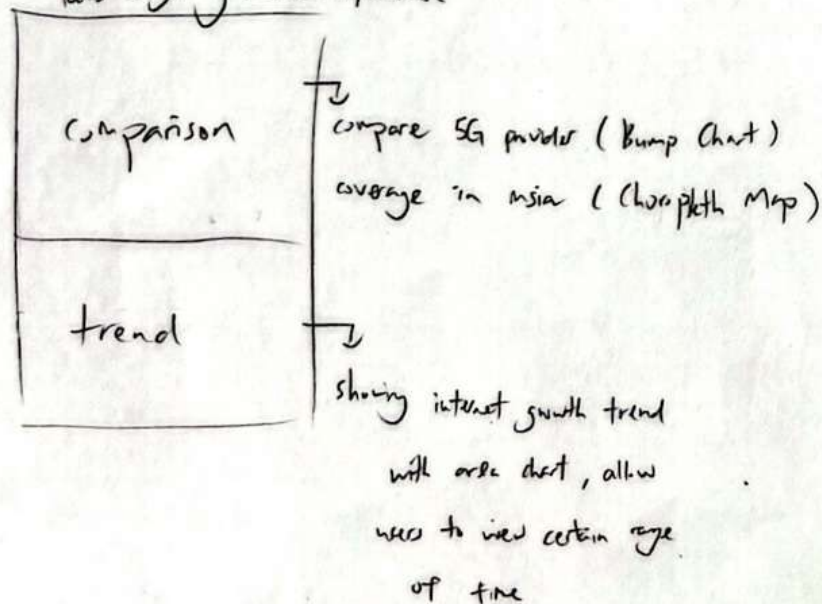 comparison
compare 5G provider (Bump Chart)
coverage in msia (Choropleth Map)
trend
showing internet growth trend
with area chart, allow
users to view certain range
of time